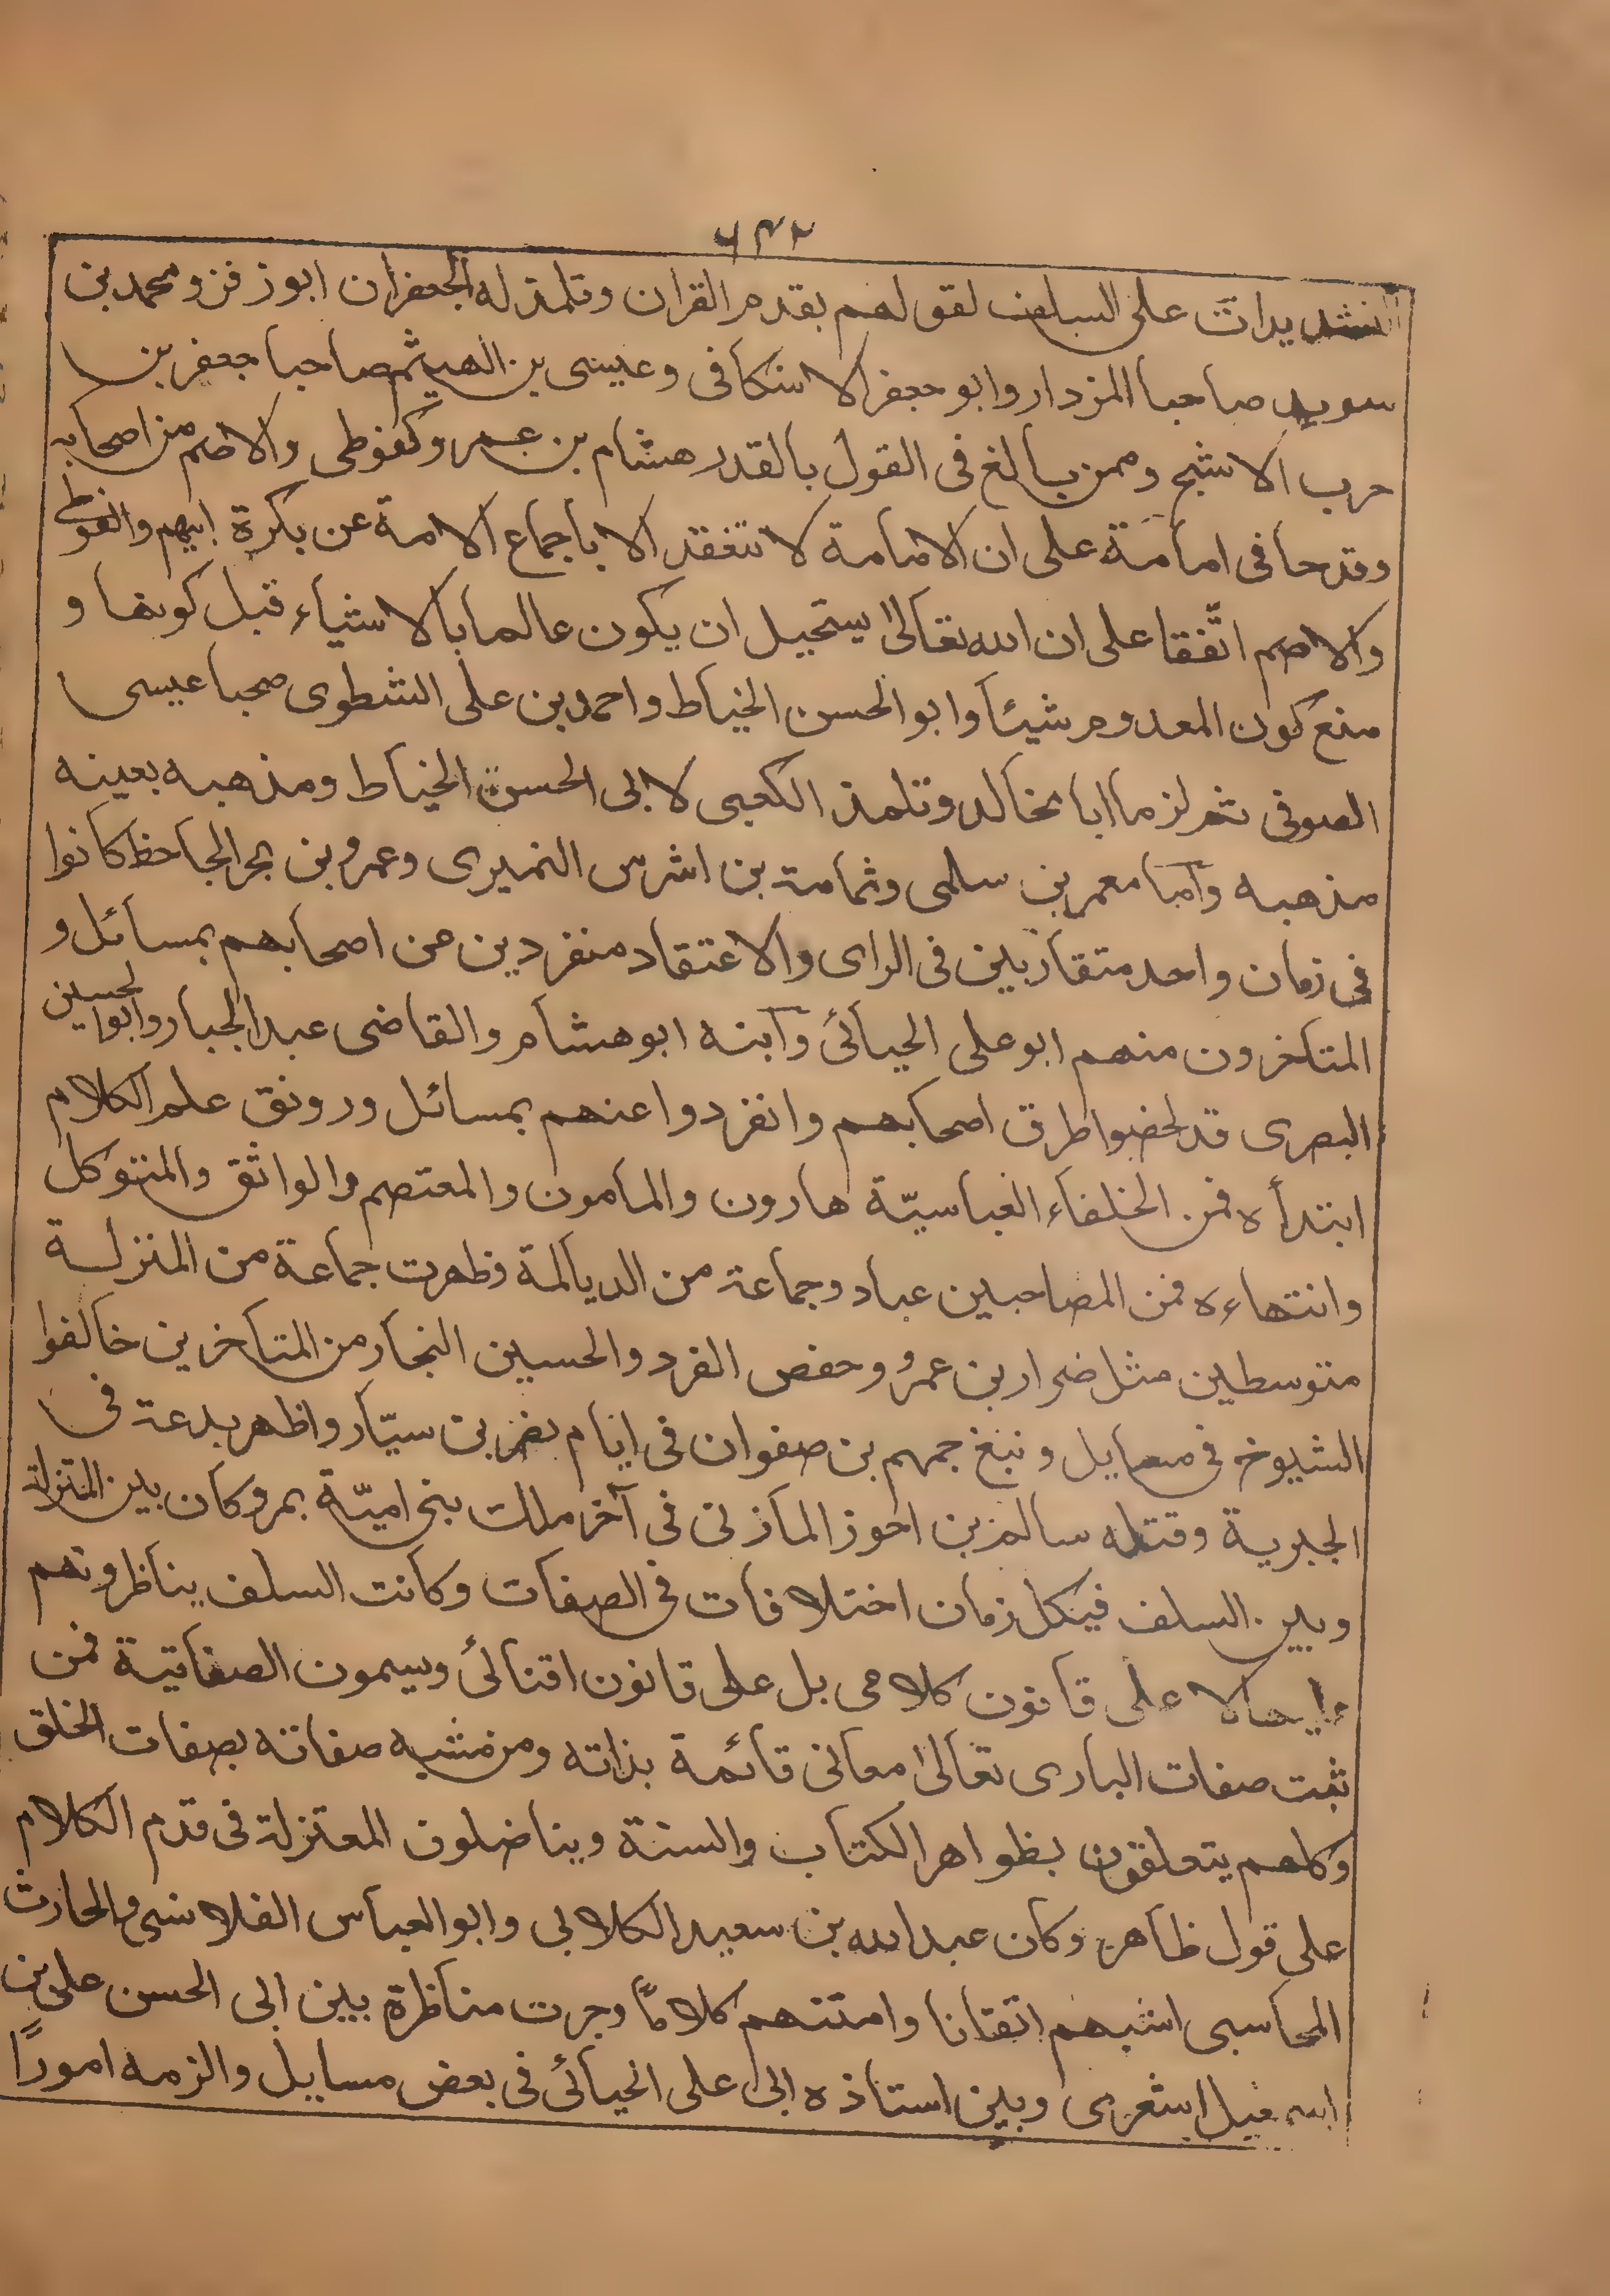 ٦٣٢
التشديدات على السلف لقولهم بقدم القران وتلمذ له الجعفران ابوزفز ومحمد بن
سويد صاحبا المزدار وابو جعفر الاسكافى وعيسى بن الهيثم صاحبا جعفر بن
حرب الاشج وممن بالغ فى القول بالقدر هشام بن عمرو كفوطى والاصم من اصحابه
وقدحا فى امامة على ان الامامة لا تنعقد الا باجماع الامة عن بكرة ابيهم والفوطى
والاصم اتّفقا على ان الله تعالىٰ يستحيل ان يكون عالما بالاشياء قبل كونها و
منع كون المعدوم شيئا وابو الحسن الخياط واحمد بن على الشطوى صحبا عيسى
الصوفى ثم لزما ابا مخالد وتلمذ الكعبى لابى الحسن الخياط ومذهبه بعينه
مذهبه وآمبا معمر بن سلمى وثمامة بن اشرس النميرى وعمرو بن بحر الجاحظ كانوا
فى زمان واحد متقاربين فى الراى والاعتقاد منفردين عن اصحابهم بمسائل و
المتاخرون منهم ابو على الجبائى وآبنه ابو هشام والقاضى عبد الجبار وابوالحسين
البصرى قد لخضوا طرق اصحابهم وانفردوا عنهم بمسائل ورونق علم الكلام
ابتدأه فمن الخلفاء العباسيّة هارون والمامون والمعتصم والواثق والمتوكل
وانتهاءه فمن المصاحبين عباد وجماعة من الديالمة وظهرت جماعة من المنزلة
متوسطين مثل ضرار بن عمرو وحفص الفرد والحسين النجار من المتاخرين خالفوا
الشيوخ فى مسايل ونبغ جمهم بن صفوان فى ايام نصر بن سيّار واظهر بدعة فى
الجبرية وقتله سالم بن احوز المازنى فى آخر ملك بنى اميّة بمرو كان بين المتزلة
وبين السلف فيكل زمان اختلافات فى الصفات وكانت السلف يناظرونهم
عليها لا على قانون كلامى بل على قانون اقنائى ويسمون الصفاتية فمن
ثبت صفات البارى تعالىٰ معانى قائمة بذاته ومن مشبه صفاته بصفات الخلق
وكلهم يتعلقون بظواهر الكتاب والسنة ويناضلون المعتزلة فى قدم الكلام
على قول ظاهر وكان عبد الله بن سعيد الكلابى وابو العباس القلانسى والحارث
المحاسبى اشبهم اتقانا وامتنهم كلاماً وجرت مناظرة بين ابى الحسن على بن
اسمعيل اشعرى وبين استاذه ابى على الجبائى فى بعض مسايل والزمه اموراً